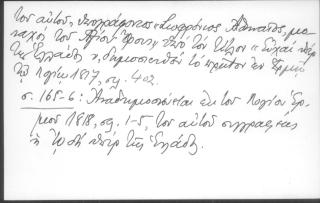 τοῦ αὐτοῦ, ὑπογράφοντος «Σωφρόνιος Ἀθηναῖος, μο-
ναχὸς τοῦ Ἁγίου Ὄρους», ὑπὸ τὸν τίτλον «Εὐχαὶ ὑπὲρ
τῆς Ἑλλάδος», δημοσιευθὲν τὸ πρῶτον ἐν Ἑρμῇ
τῷ Λογίῳ 1817, σς. 402
σ. 165-6: Ἀναδημοσιεύεται ἐκ τοῦ Λογίου Ἑρ-
μοῦ 1818, σς. 1-5, τοῦ αὐτοῦ συγγραφέως
ἡ ᾠδὴ ὑπὲρ τῆς Ἑλλάδος.